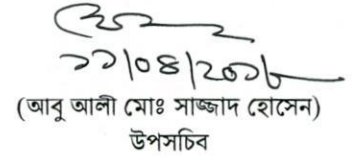 ১১/০৪/২০১৮
(আবু আলী মোঃ সাজ্জাদ হোসেন)
উপসচিব